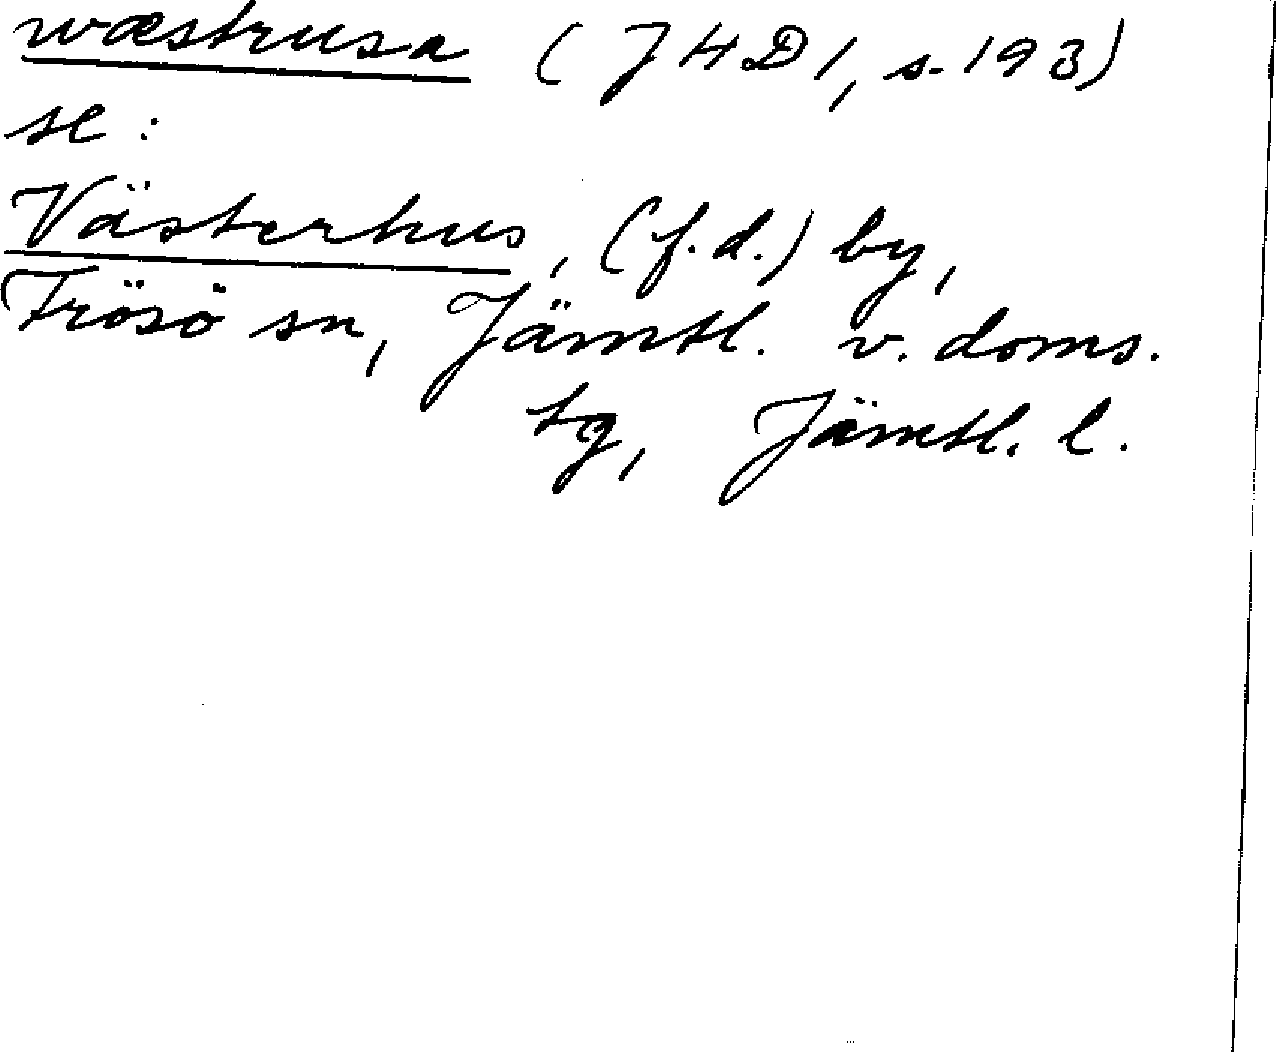 wæstrusa (JHD1, s. 193)
se:
Västerhus, (f.d.) by,
Frösö sn, Jämtl. v. doms.
tg, Jämtl. l.